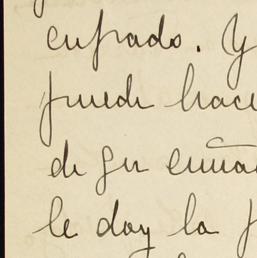 enfrado. Y
puede hace
de su cuña
le doy la